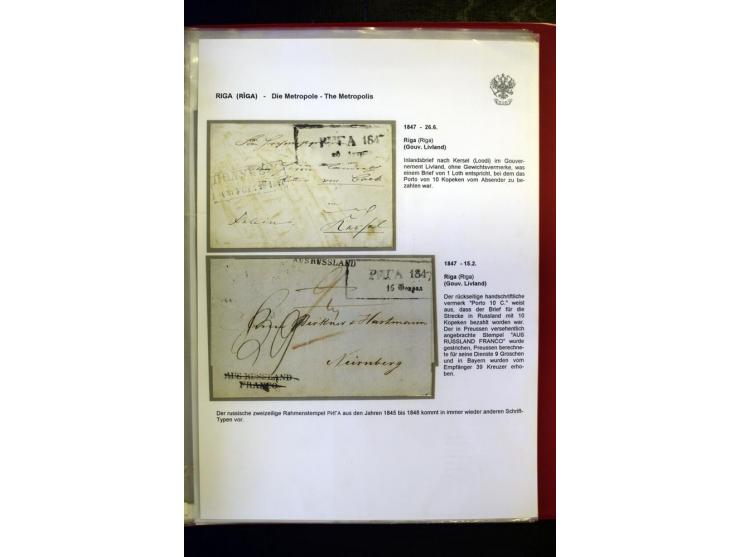 RIGA (RĪGA) - Die Metropole - The Metropolis
1847 - 26.6.
Riga (Rīga)
(Gouv. Livland)
Inlandsbrief nach Kersel (Loodi) im Gouver-
nement Livland, ohne Gewichtsvermerke, was
einem Brief von 1 Loth entspricht, bei dem das
Porto von 10 Kopeken vom Absender zu be-
zahlen war.
РИГА 184
Kersel
1847 - 15.2.
Riga (Rīga)
(Gouv. Livland)
Der rückseitige handschriftliche
vermerk "Porto 10 C." weist
aus, dass der Brief für die
Strecke in Russland mit 10
Kopeken bezahlt worden war.
Der in Preussen versehentlich
angebrachte Stempel "AUS
RUSSLAND FRANCO" wurde
gestrichen, Preussen berechne-
te für seine Dienste 9 Groschen
und in Bayern wurden vom
Empfänger 39 Kreuzer erho-
ben.
AUS RUSSLAND
РИГА 1847
15 Февраля
Nürnberg
AUS RUSSLAND
FRANCO
Der russische zweizeilige Rahmenstempel РИГА aus den Jahren 1845 bis 1848 kommt in immer wieder anderen Schrift-
Typen vor.